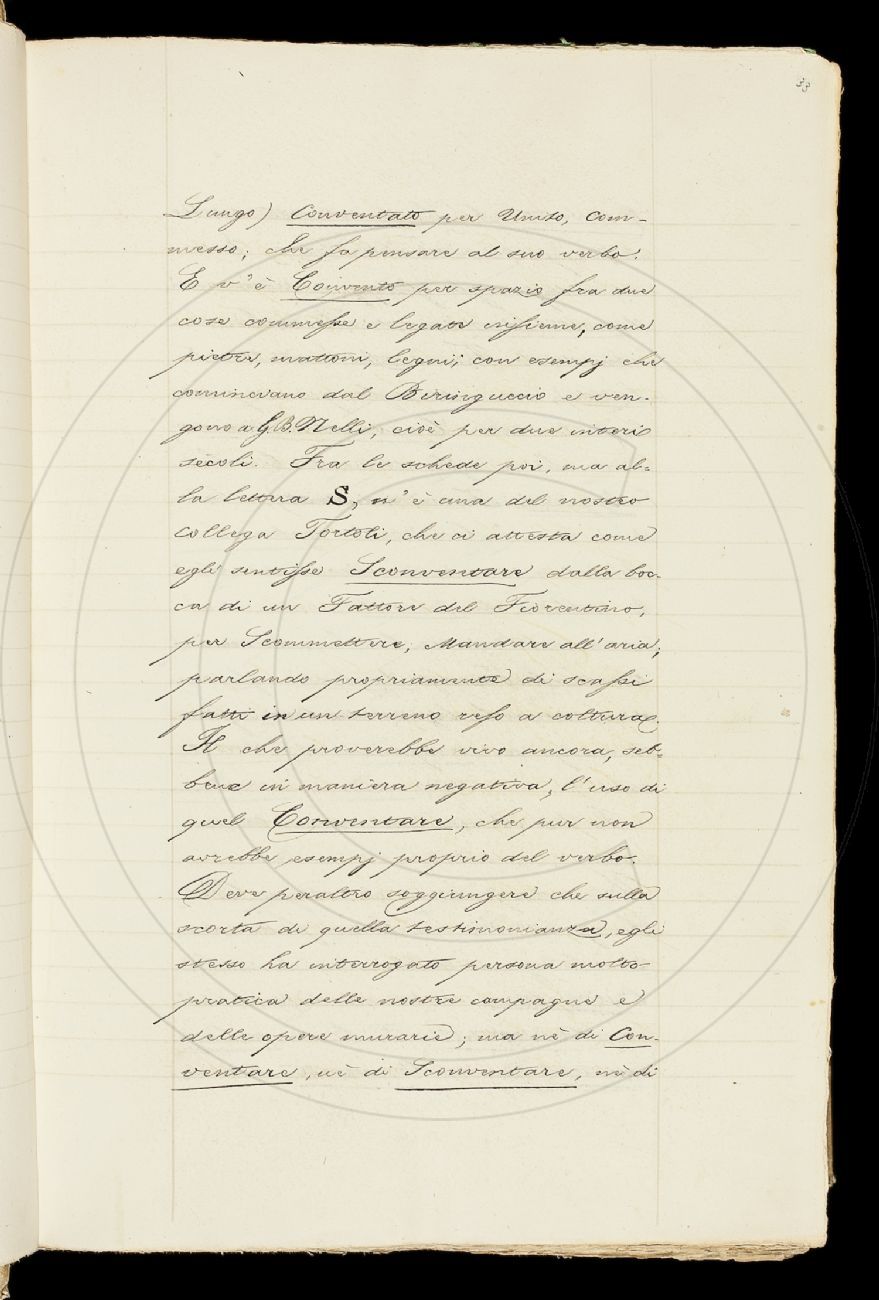 33
Lungo) Conventato per Unito, Com-
messo; che fa pensare al suo verbo.
E v'è Convento per spazio fra due
cose commesse e legate insieme, come
pietre, mattoni, legni; con esempj che
cominciano dal Biringuccio e ven-
gono a G.B. Nelli, cioè per due interi
secoli. Fra le schede poi, ma al-
la lettera S, n'è una del nostro
Collega Tortoli, che ci attesta come
egli sentisse Sconventare dalla boc-
ca di un Fattore del Fiorentino,
per Scommettere, Mandare all'aria;
parlando propriamente di scassi
fatti in un terreno reso a coltura.
Il che proverebbe vivo ancora, seb-
bene in maniera negativa, l'uso di
quel Conventare, che pur non
avrebbe esempj proprio del verbo.
Deve peraltro soggiungere che sulla
scorta di quella testimonianza, egli
stesso ha interrogato persona molto
pratica delle nostre campagne e
delle opere murarie; ma nè di Con-
ventare, nè di Sconventare, nè di